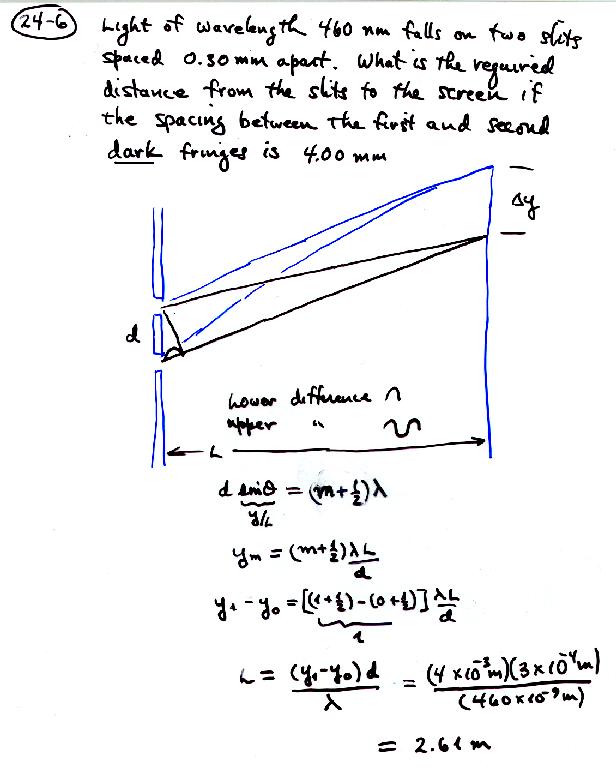 24-6
Light of wavelength 460 nm falls on two slits
spaced 0.30 mm apart. What is the required
distance from the slits to the screen if
the spacing between the first and second
dark fringes is 4.00 mm
Δy
d
Lower difference
upper "
L
d sinθ = (m+½)λ
y/L
yₘ = (m+½) λL/d
y₁ - y₀ = [(1+½)-(0+½)] λL/d
1
L = (y₁-y₀)d / λ = (4 x10⁻³m)(3x10⁻⁴m) / (460x10⁻⁹m)
= 2.61 m